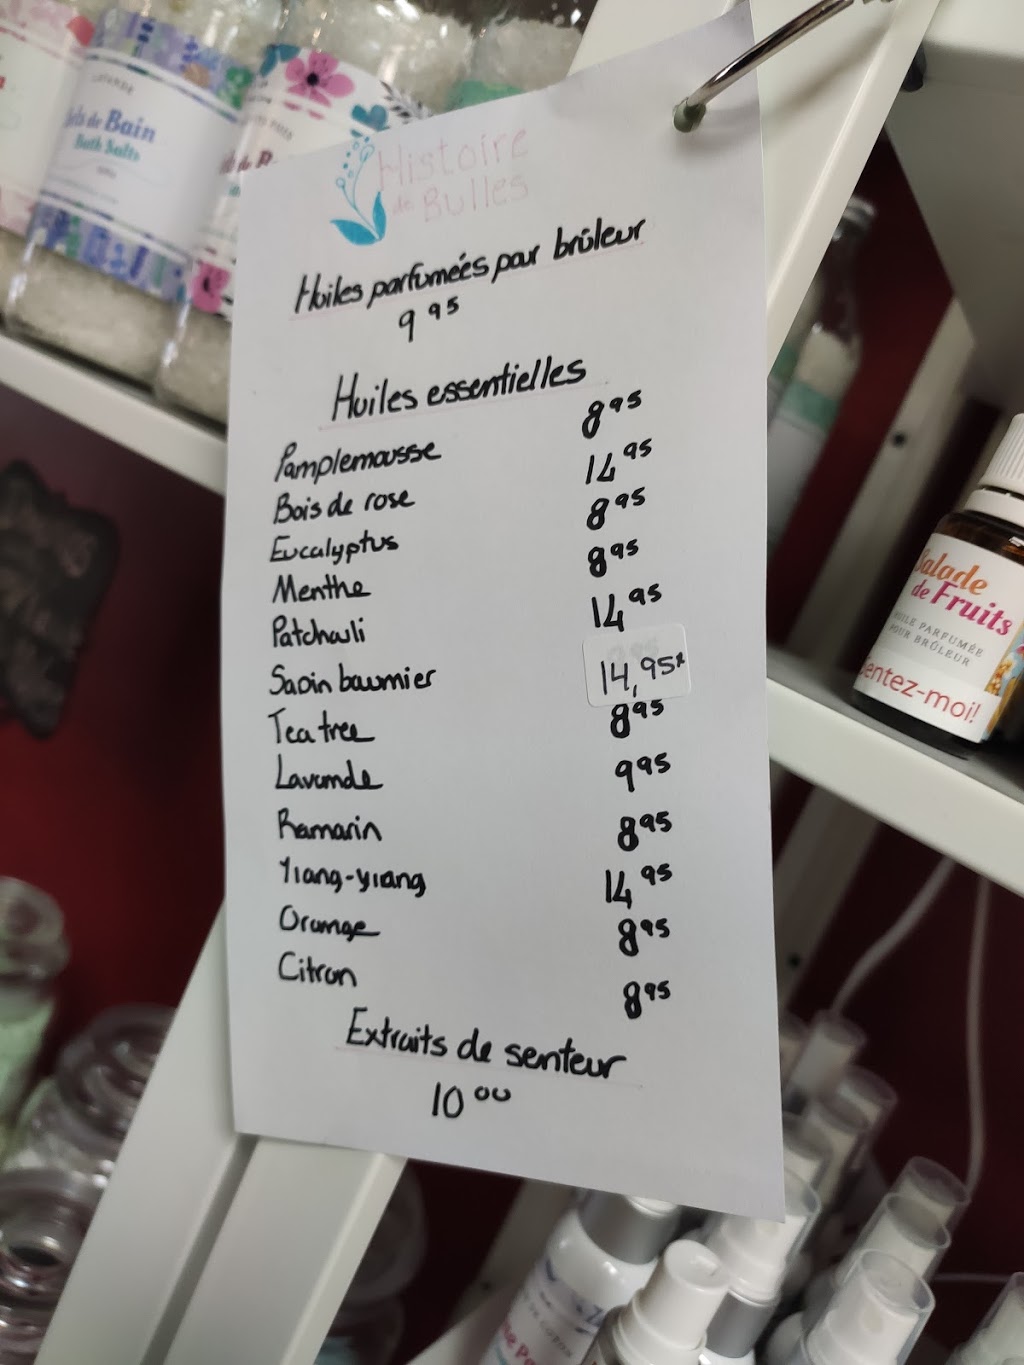 Histoire
de Bulles
Huiles parfumées pour brûleur
9 95
Huiles essentielles
Pamplemousse 8 95
Bois de rose 14 95
Eucalyptus 8 95
Menthe 8 95
Patchouli 14 95
Sapin baumier 14,95
Tea tree 8 95
Lavande 9 95
Romarin 8 95
Ylang-ylang 14 95
Orange 8 95
Citron 8 95
Extraits de senteur
10 00
de Bain
Bath Salts
Salade
de Fruits
HUILE PARFUMÉE
POUR BRÛLEUR
Sentez-moi!